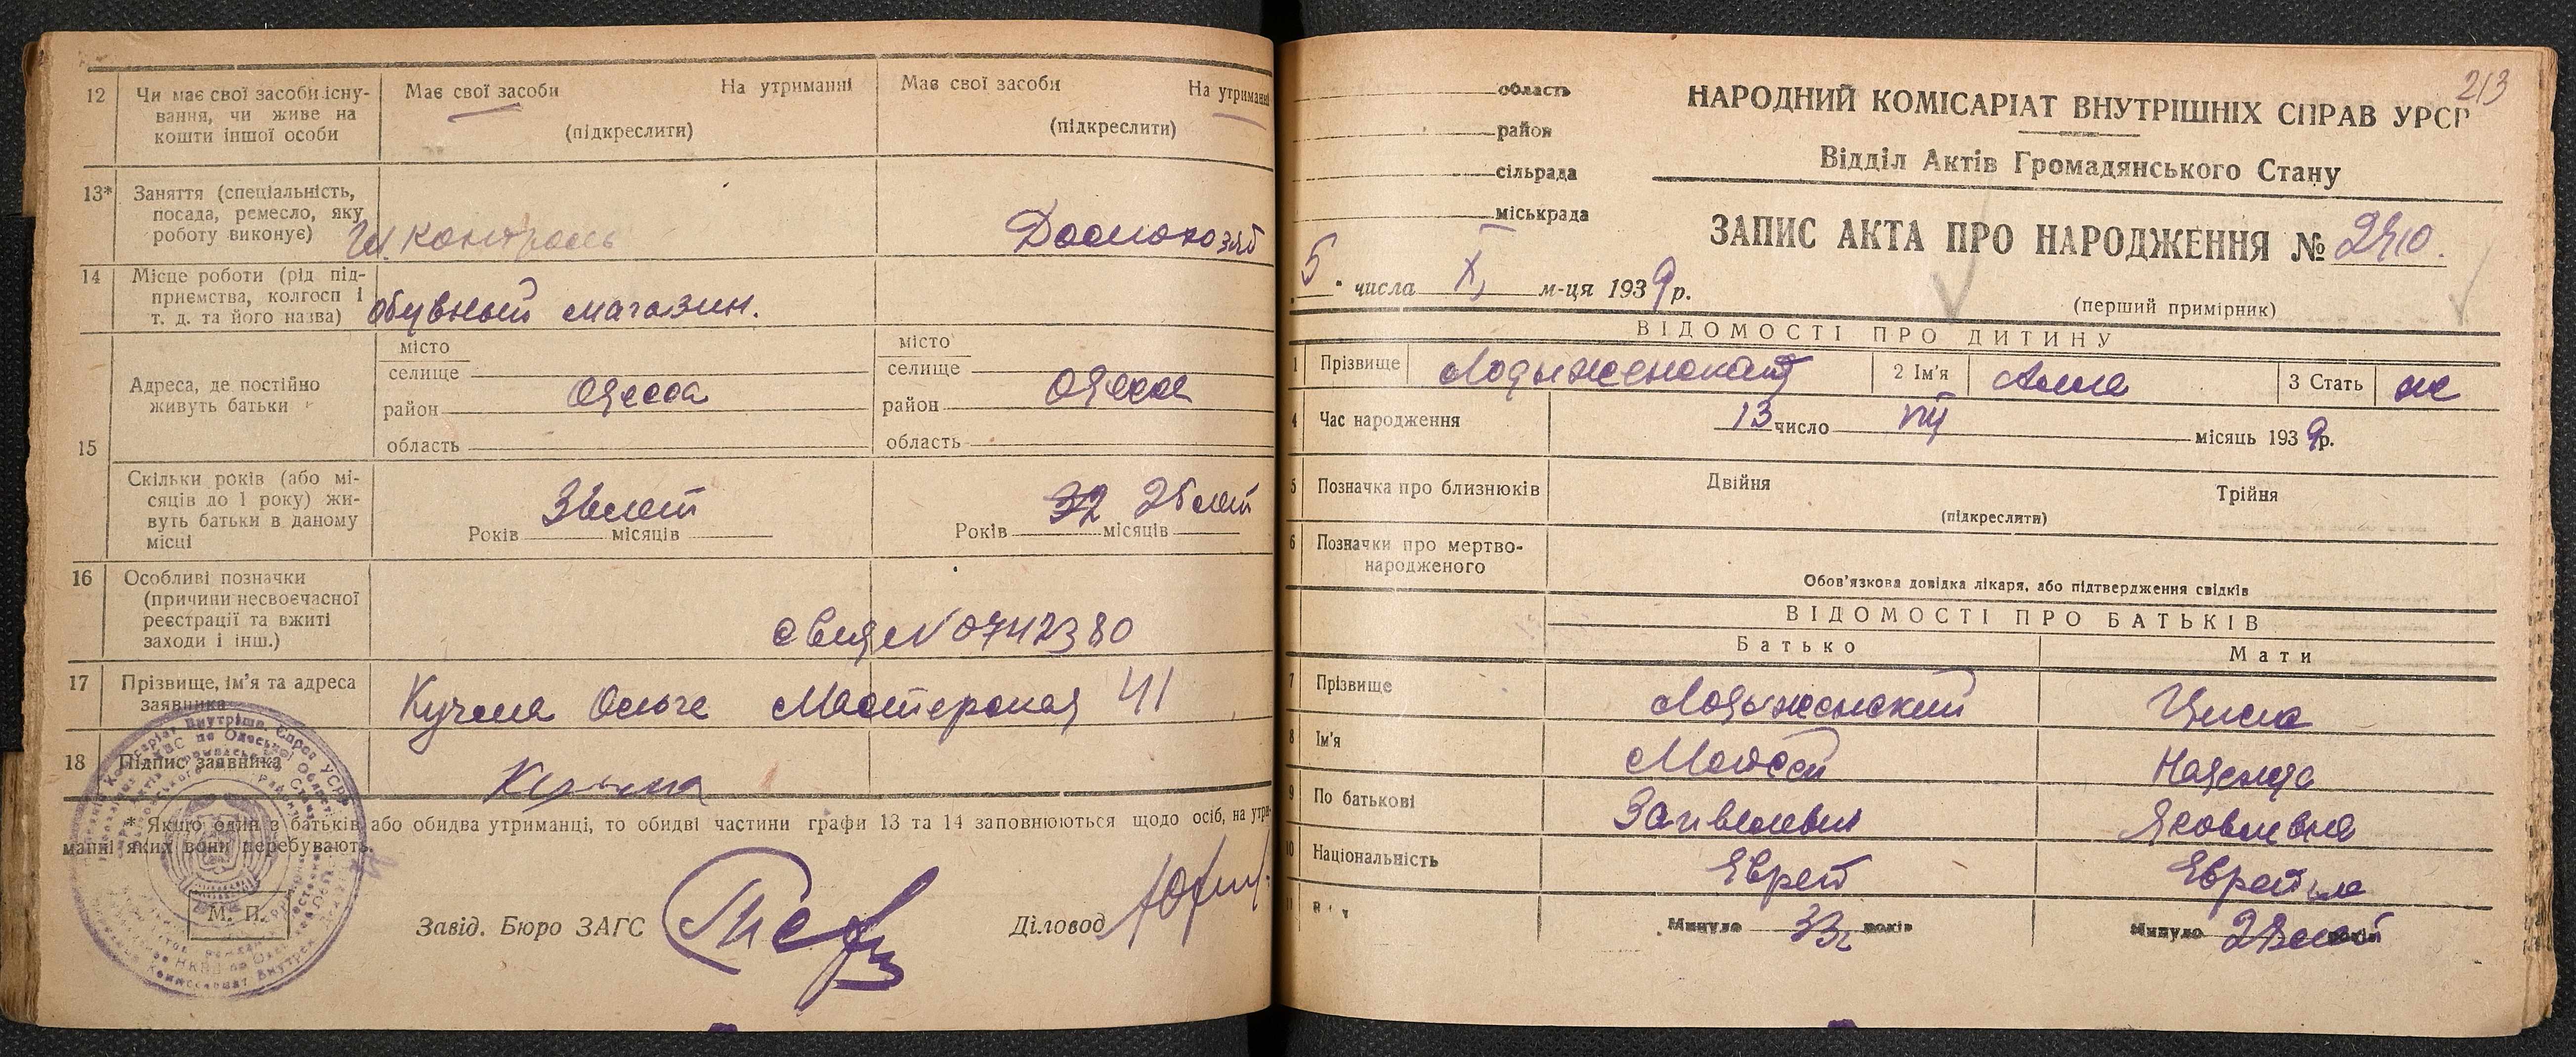 12 Чи має свої засоби існу-
вання, чи живе на
кошти іншої особи
Має свої засоби На утриманні
(підкреслити)
Має свої засоби На утриманні
(підкреслити)
13* Заняття (спеціальність,
посада, ремесло, яку
роботу виконує)
контроль
Домохоз
14 Місце роботи (рід під-
приємства, колгосп і
т. д. та його назва)
обувный магазин.
15 Адреса, де постійно
живуть батьки
місто
селище
район
область
Одесса
місто
селище
район
область
Одесса
Скільки років (або мі-
сяців до 1 року) жи-
вуть батьки в даному
місці
Років місяців
лет
Років місяців
32 25 лет
16 Особливі позначки
(причини несвоєчасної
реєстрації та вжиті
заходи і інш.)
№ 0742380
17 Прізвище, ім'я та адреса
заявника
Кучма Ольга Мастерская 41
18 Підпис заявника
* Якщо один з батьків або обидва утриманці, то обидві частини графи 13 та 14 заповнюються щодо осіб, на утри-
манні яких вони перебувають.
М. П.
Завід. Бюро ЗАГС
Діловод
213
область
район
сільрада
міськрада
НАРОДНИЙ КОМІСАРІАТ ВНУТРІШНІХ СПРАВ УРСР
Відділ Актів Громадянського Стану
ЗАПИС АКТА ПРО НАРОДЖЕННЯ № 2410.
5 числа X м-ця 1939 р.
(перший примірник)
ВІДОМОСТІ ПРО ДИТИНУ
1 Прізвище Лодыженская 2 Ім'я Алла 3 Стать ж
4 Час народження 13 число місяць 1939 р.
5 Позначка про близнюків Двійня Трійня
(підкреслити)
6 Позначки про мертво-
народженого
Обов'язкова довідка лікаря, або підтвердження свідків
ВІДОМОСТІ ПРО БАТЬКІВ
Батько Мати
7 Прізвище Лодыженский
8 Ім'я Моисей Надежда
9 По батькові Яковлевна
10 Національність Еврей Еврейка
11 Минуло 33 років Минуло років